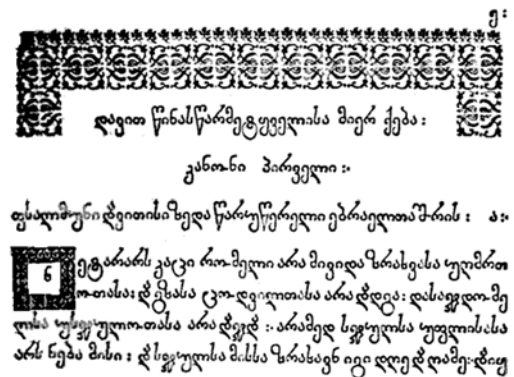 ე:
დავით წინასწარმეტყველისა მიერ ქება:
კანონი პირველი:
ფსალმუნი დავითისი ზედა წარუწერელი ებრაელთა შ~რის: ა:
ნეტარარს კაცი რომელი არა მივიდა ზრახვასა უღმრთ
ოთასა: დ გზასა ცოდვილთასა არა დადგა: დასაჯდომე
ლსა უსჯულოთასა არა დაჯდ: არამედ სჯულსა უფლისასა
არს ნება მისი: დ სჯულსა მისსა ზრახავნ იგი დღე დ ღამე: დიყ